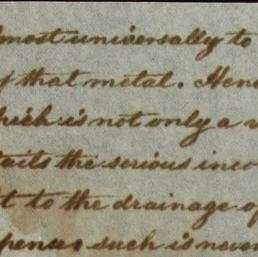 most universally to
of that metal. Hen
which is not only a
tails the serious inco
it to the drainage of
penses such is never